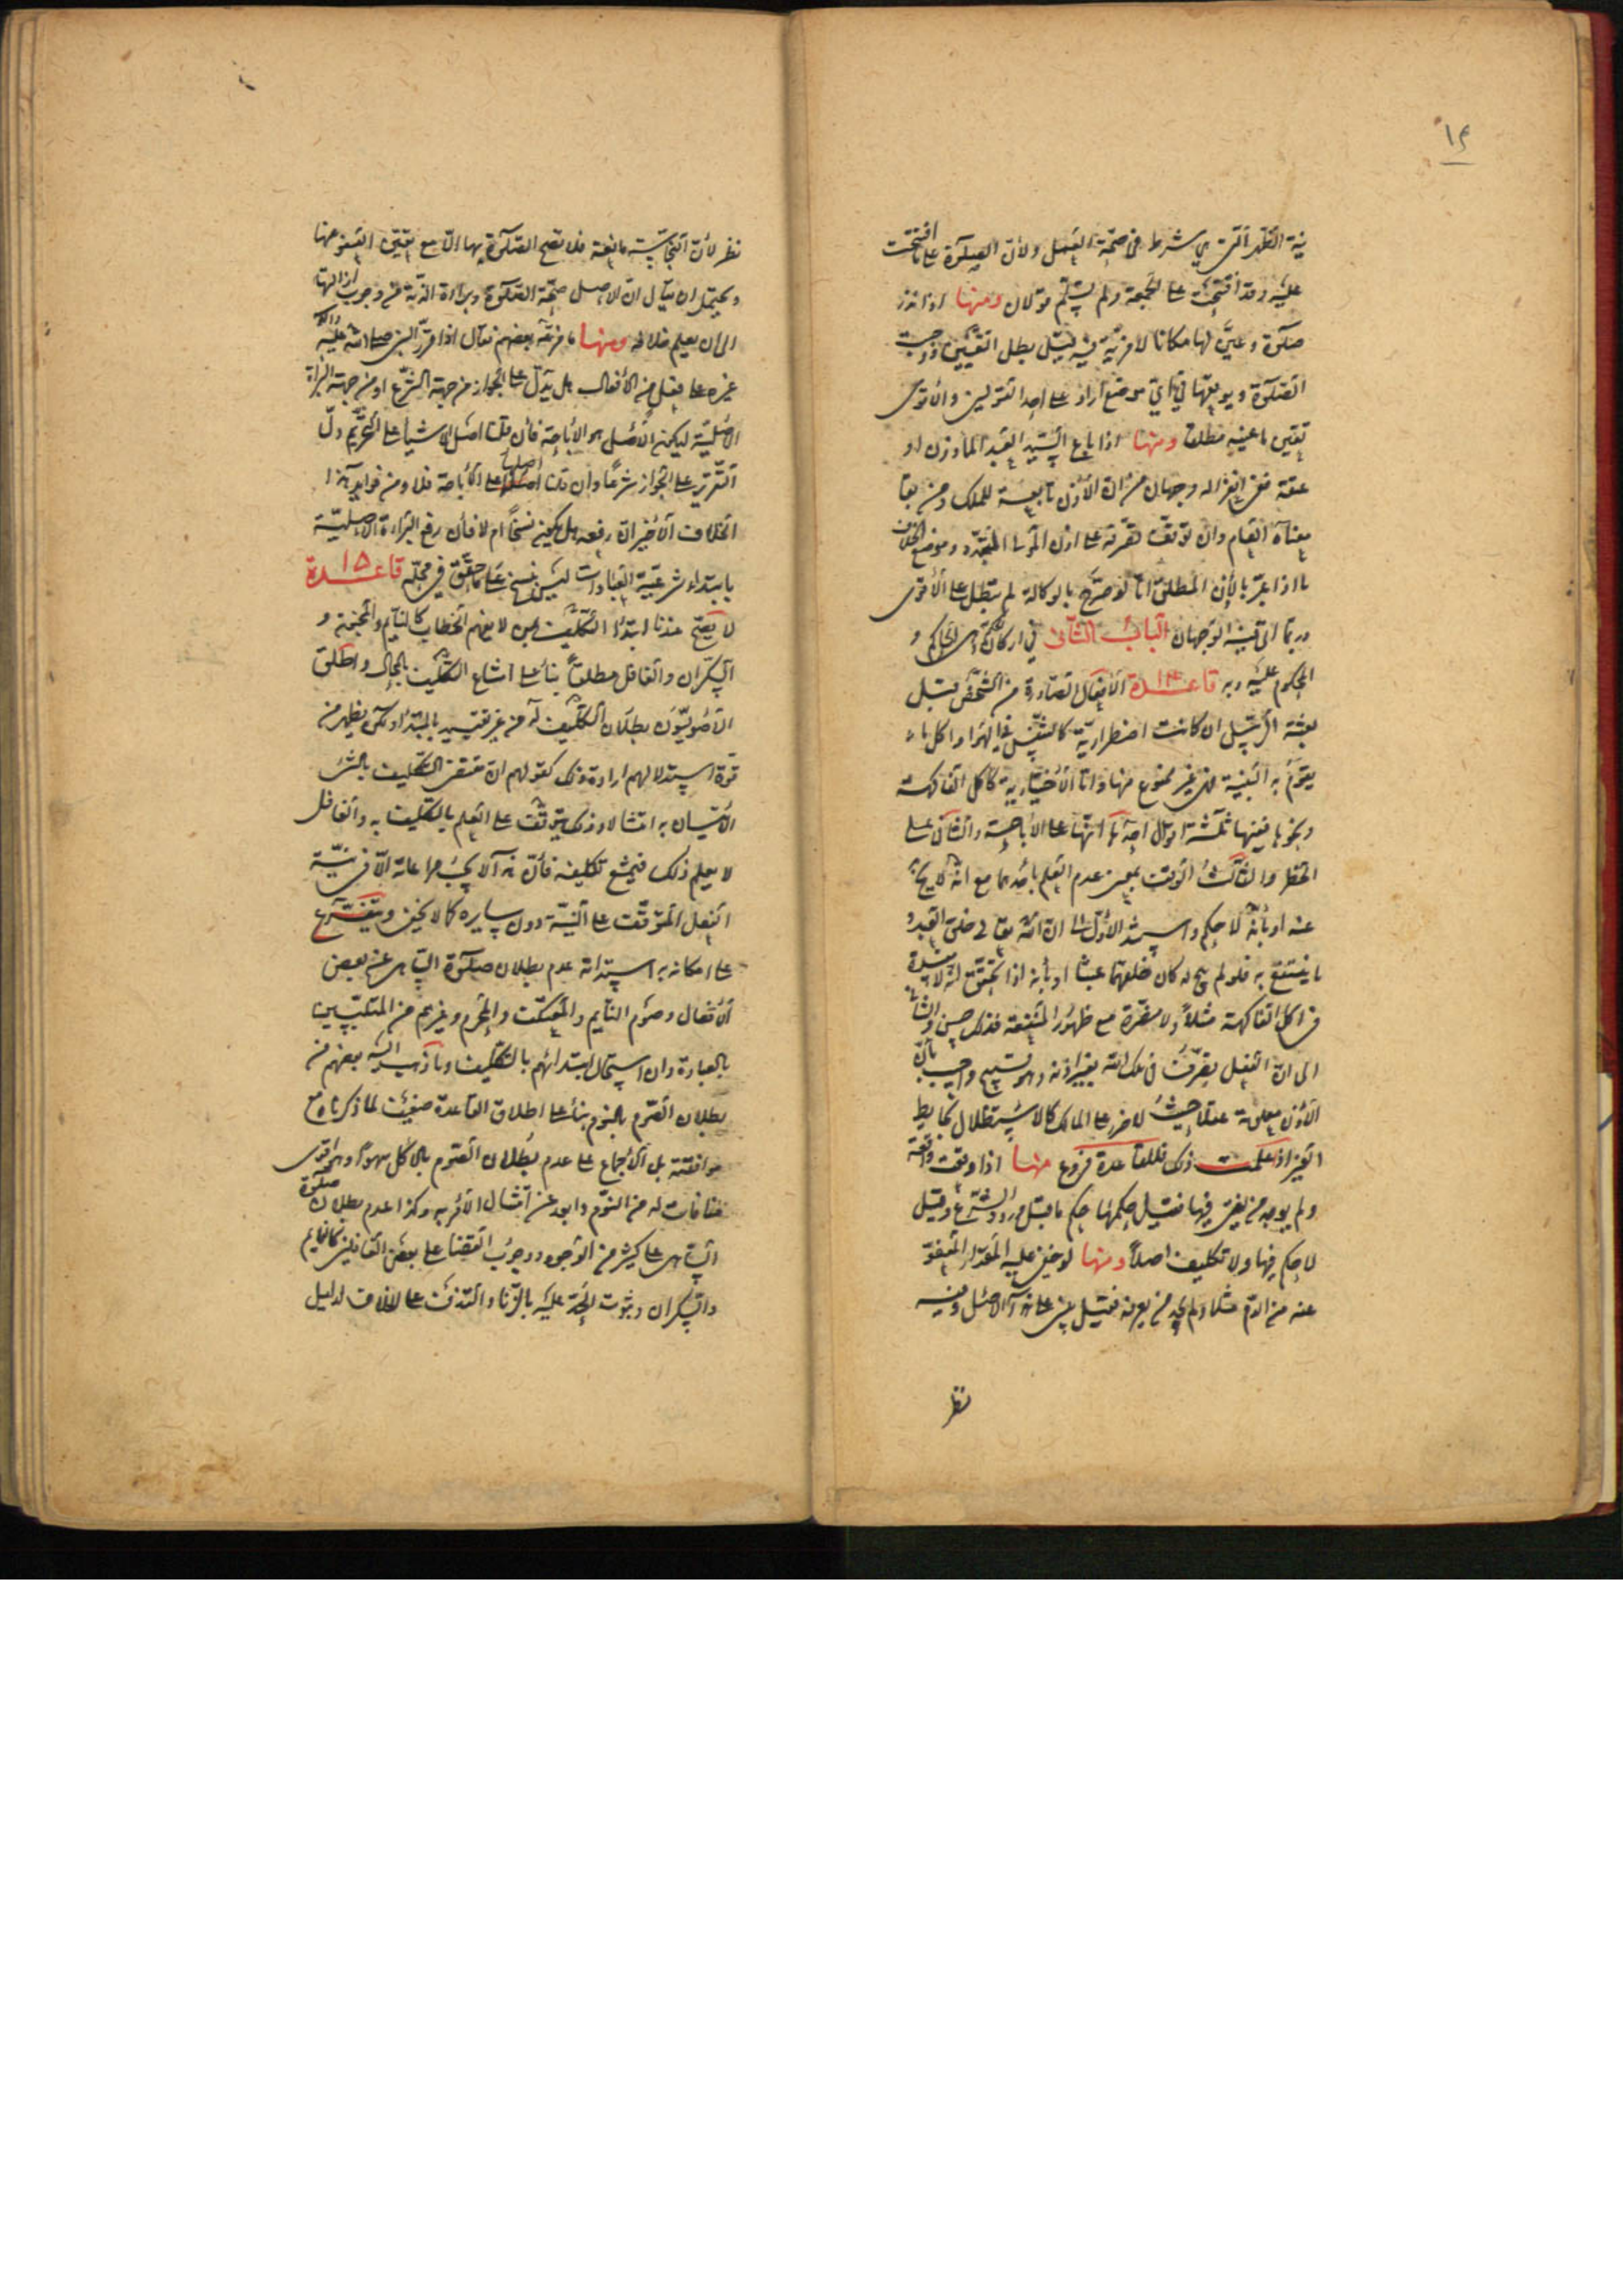 ١٤
نية الظهر التى هي شرط فى صحة الفعل ولأن الصلوة على ما افتتحت
عليه وقد افتتحت على الجمعة ولم يسلم قولان ومنها اذا نذر
صلوة وعيّن لها مكانا لا مزية فيه قيل بطل التعيين ووجبت
الصلوة ويوقعها في اي موضع اراد على احد القولين والاقوى
تعين ما عينه مطلقا ومنها اذا باع السيد العبد المأذون او
عتقه ففى انعزاله وجهان من ان الأذن تابعة للملك ومن بقا
معناه العام وان توقف تصرفه على اذن المولى المتجدد وموضع الخلاف
ما اذا عبّر بالإذن المطلق امّا لو صرّح بالوكالة لم تبطل على الأقوى
وربما اتى فيه الوجهان الباب الثانى في اركان الحكم وهى الحاكم و
المحكوم عليه وبه قاعدة ١٤ الأفعال الصادرة من الشخص قبل
بعثة الرسل ان كانت اضطرارية كالتنفس في الهواء واكل ما
يقوم به البنية فهى غير ممنوع منها وامّا الأختيارية كأكل الفاكهة
ونحوها ففيها ثلثة اقوال احدها انها على الأباحة والثانى على
الحظر والثالث الوقف بمعنى عدم العلم بأحدهما مع انه لا يخ
عنه او بأنه لا حكم واستند الأول الى ان الله تعالى خلق العبد و
ما ينتفع به فلو لم يبح له كان خلقهما عبثا او بأنه اذا تحقق انه لا مفسدة
فى اكل الفاكهة مثلاً ولا مضرة مع ظهور المنفعة فذلك حسن والثانى
الى ان الفعل تصرّف فى ملك الله بغير اذنه وهو قبيح واجيب بأن
الأذن معلومة عقلا حيث لا ضرر على المالك كالاستظلال بحايط
الغير اذ علمت ذلك فللقاعدة فروع منها اذا وقعت واقعة
ولم يوجد من يفتى فيها فقيل حكمها حكم ما قبل ورود الشرع وقيل
لا حكم فيها ولا تكليف اصلاً ومنها لو خفى عليه المقدار المعفوّ
عنه من الدم مثلا ولم يجد من يعرفه فقيل يبنى على هذا الاصل وفيه
نظر
نظر لأن النجاسة مانعة فلا تصح الصلوة بها الا مع يقين العفو عنها
ويحتمل ان يقال ان الاصل صحة الصلوة وبراءة الذمة من وجوب ازالتها
الى ان يعلم خلافه ومنها ما فرعه بعضهم فقال اذا قرر النبى صلى الله عليه واله
غيره على فعل من الأفعال هل يدلّ على الجواز من جهة الشرع او من جهة البراءة
الاصلية ليكون الأصل هو الأباحة فأن قلنا اصل الاشياء على التحريم دلّ
التقرير على الجواز شرعًا وان قلنا اصلها على الأباحة فلا ومن فوايد هذا
الخلاف الأخير ان رفعه هل يكون نسخًا ام لا فأن رفع البراءة الاصلية
بابتداء شرعية العبادات ليس بنسخ على ما حقق فى محله قاعدة ١٥
لا يصح عندنا ابتداء التكليف لمن لا يفهم الخطاب كالنايم والمجنون و
السكران والغافل مطلقا بناءً على امتناع التكليف بالمحال واطلق
الأصوليون بطلان التكليف له من غير تقييد بالمبتدا ولكن يظهر من
قوة استدلالهم ارادة ذلك كقولهم ان مقتضى التكليف بالشئ
الأتيان به امتثالا وذلك يتوقف على العلم بالتكليف به والغافل
لا يعلم ذلك فيمتنع تكليفه فأن هذا لا يجب مراعاته الا فى نيّة
الفعل المتوقف على النيّة دون سايره كما لا يخفى ويتفرّع
على امكانه به استدامة عدم بطلان صلوة الساهى عن بعض
الأفعال وصوم النايم والمعتكف والمحرم وغيرهم من المتلبسين
بالعبادة وان استحال ابتدائهم بالتكليف وما ذهب اليه بعضهم من
بطلان الصوم بالنوم بناءً على اطلاق القاعدة ضعيف لما ذكرناه مع
موافقته بل الأجماع على عدم بطلان الصوم بالاكل سهوًا وهو اقوى
منافات له من النوم وابعد عن امتثال الأمر به وكذا عدم بطلان صلوة
الساهى على كثير من الوجوه ووجوب القضا على بعض الغافلين كالنايم
والسكران وثبوت الحدّ عليه بالزنا والقذف على الخلاف لدليل